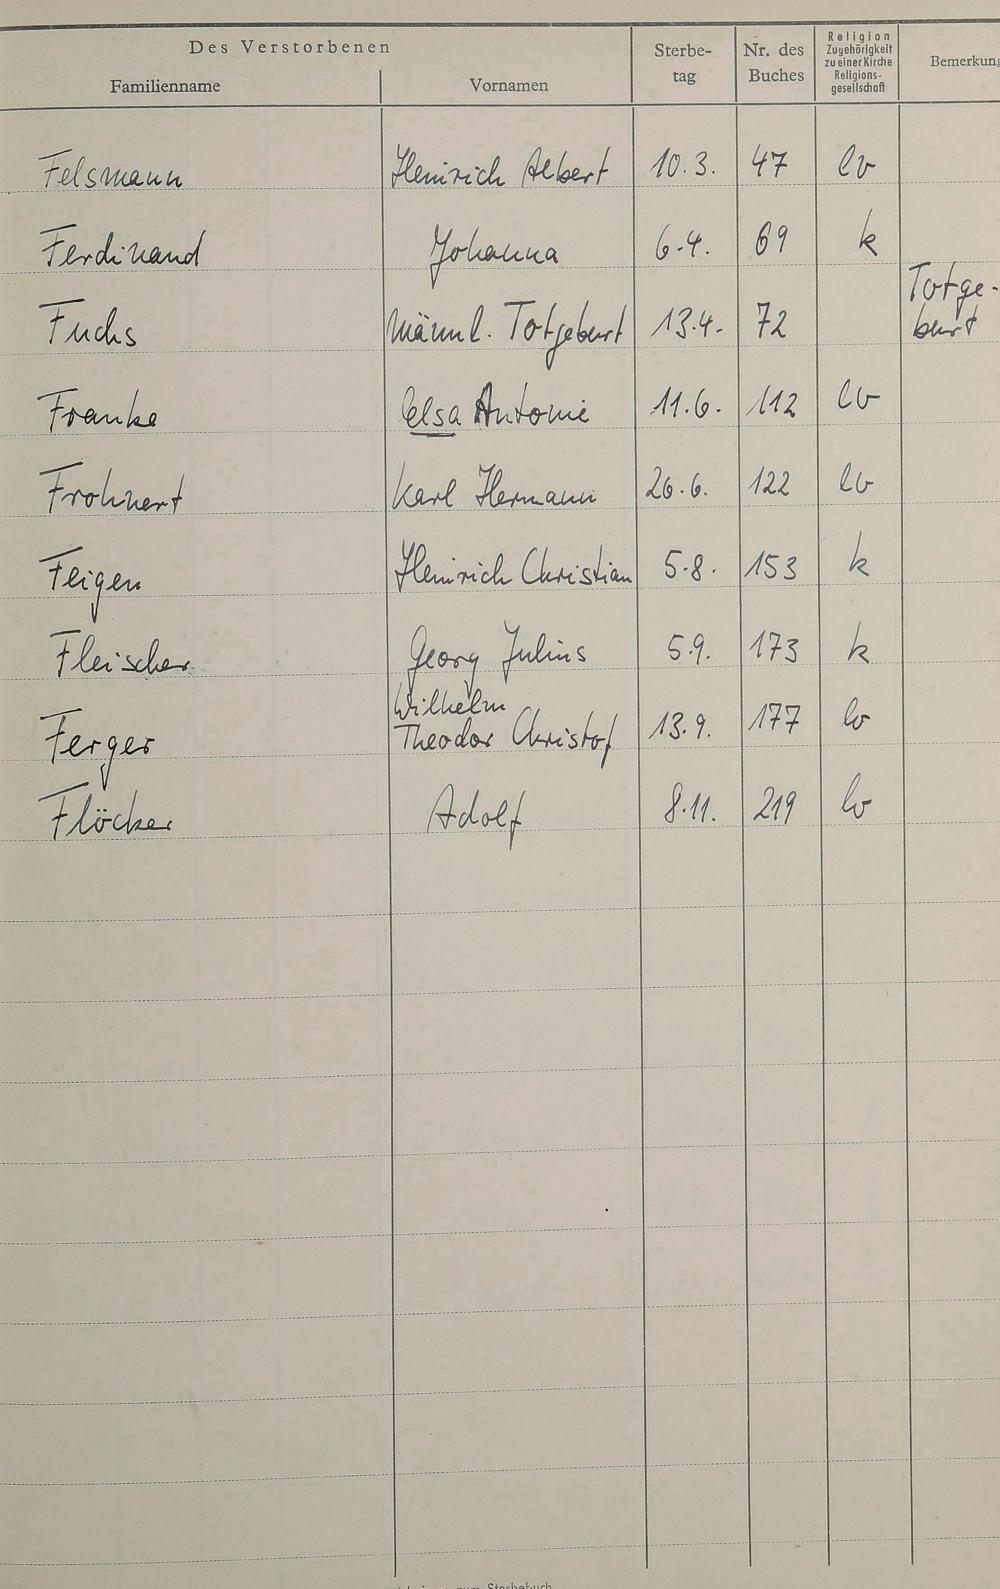 Des Verstorbenen
Familienname
Vornamen
Sterbe-
tag
Nr. des
Buches
Religion
Zugehörigkeit
zu einer Kirche
Religions-
gesellschaft
Bemerkung
Felsmann Heinrich Albert 10.3. 47 ev
Ferdinand Johanna 6.4. 69 k
Fuchs männl. Totgeburt 13.4. 72 Totge-
burt
Franke Elsa Antonie 11.6. 112 ev
Frohnert Karl Hermann 26.6. 122 ev
Feigen Heinrich Christian 5.8. 153 k
Fleischer Georg Julius 5.9. 173 k
Wilhelm
Ferger Theodor Christof 13.9. 177 ev
Flöcker Adolf 8.11. 219 ev
zum Sterbebuch